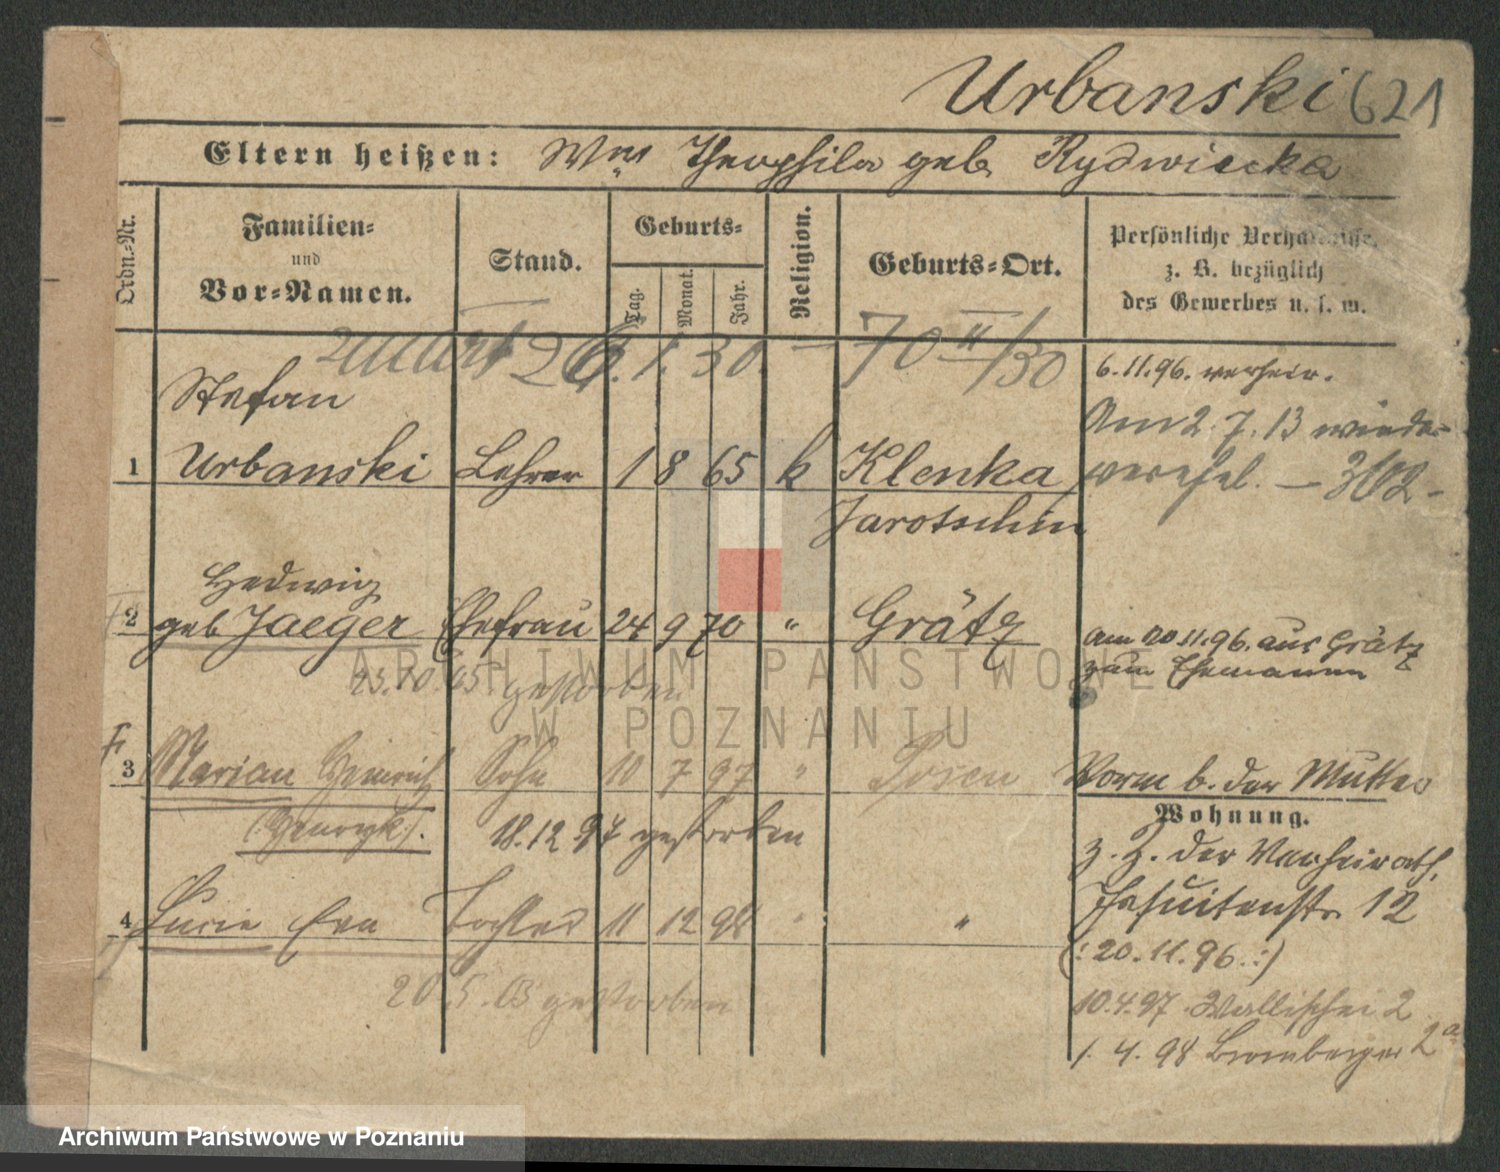 Urbanski 621
Eltern heißen: Wwe Theophila geb Rydwiecka
Ordn.-Nr. Familien- und Vor-Namen. Stand. Geburts- Tag. Monat. Jahr. Religion. Geburts-Ort. Persönliche Verhältnisse, z. B. bezüglich des Gewerbes u. s. w.
26.1.30. – 70 II/30
Stefan 6.11.96. verheir.
Am 2.7.13 wieder
1 Urbanski Lehrer 1 8 65 k Klenka verehel. – 3102 –
Jarotschin
Hedwig
2 geb Jaeger Ehefrau 24 9 70 " Grätz Am 20 11.96. aus Grätz
zum Ehemann
23.10.05 gestorben
F 3 Marian Heinrich Sohn 10 7 97 " Posen Vorm b. der Mutter
(:Henryk:). 18.12 97 gestorben Wohnung.
z. Z. der Verheirath.
4 Lucie Eva Tochter 11 12 98 " " Jesuitenstr 12
(:20.11.96.:)
20.5.03 gestorben 10.4.97 Wallischei 2
1.4.98 Bromberger 2a
ARCHIWUM PAŃSTWOWE
W POZNANIU
Archiwum Państwowe w Poznaniu